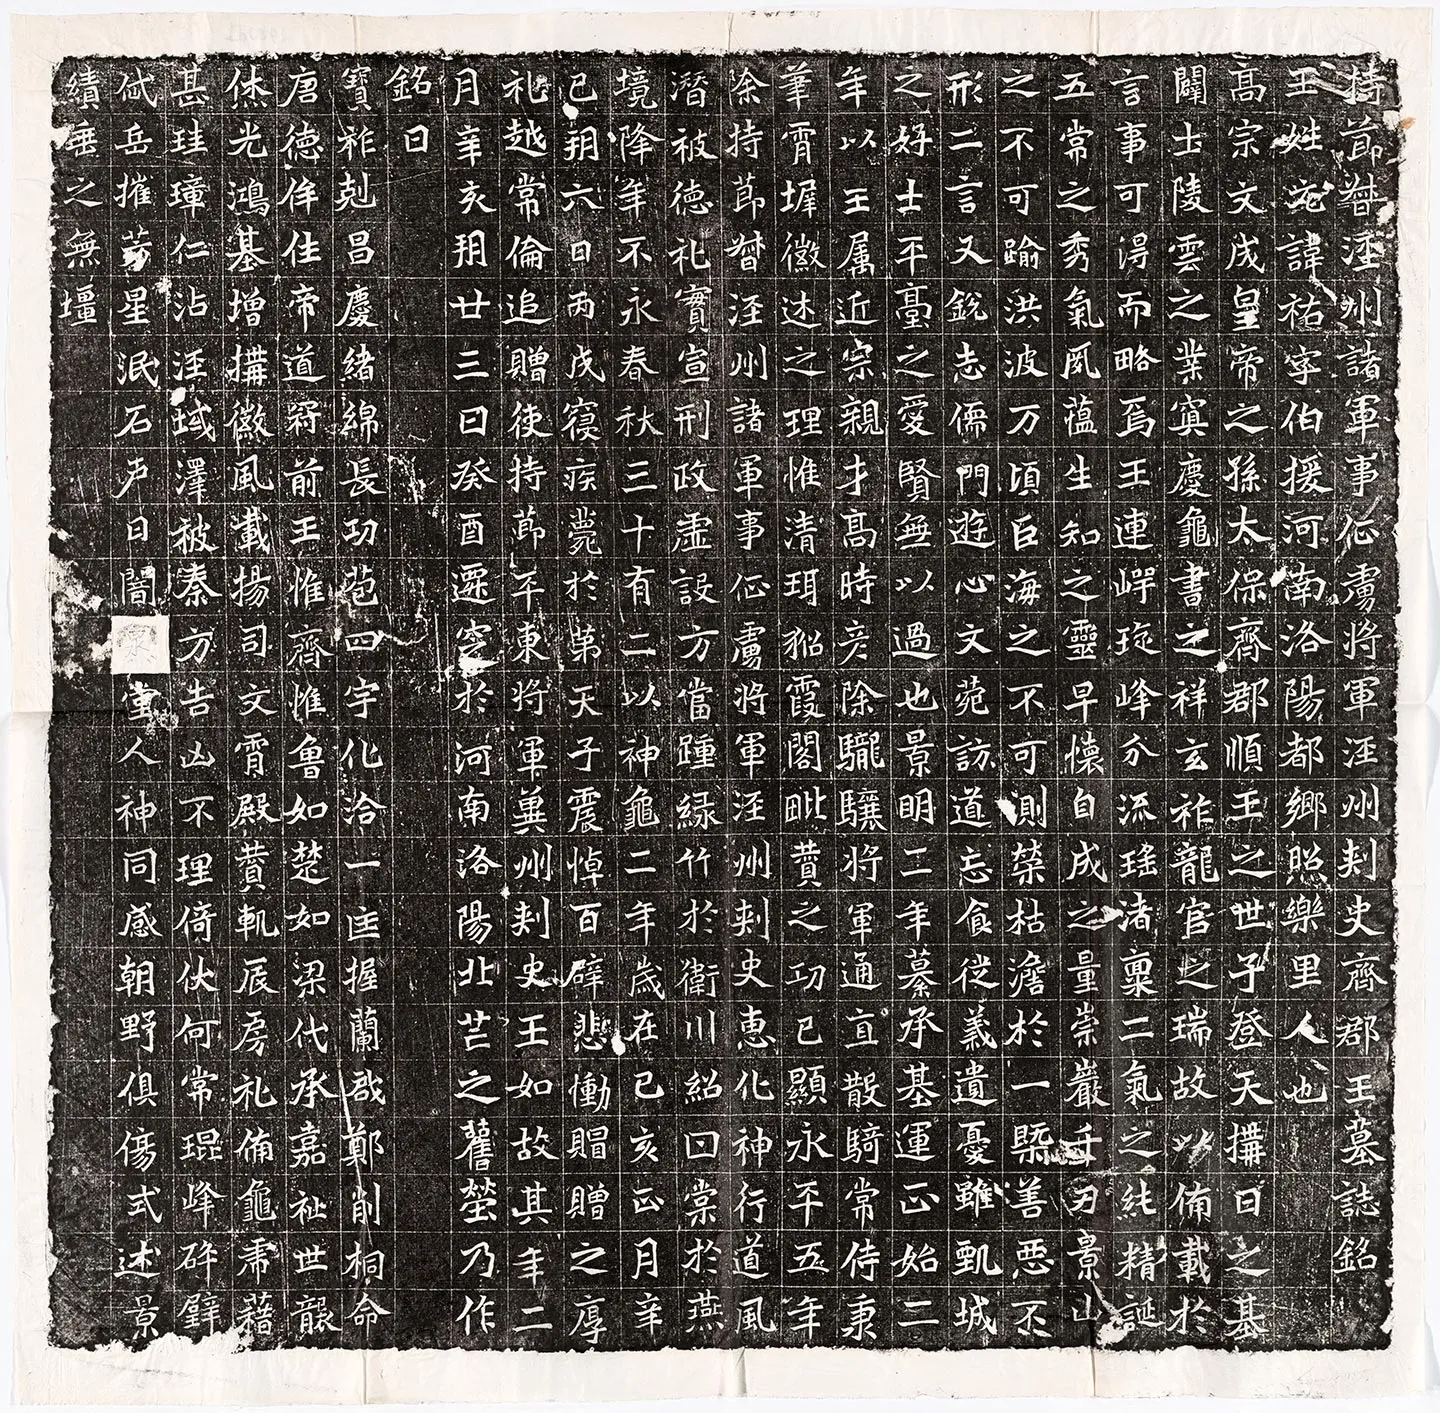 持節督涇州諸軍事征虜將軍涇州刾史齊郡王墓誌銘
王姓元諱祐字伯援河南洛陽都鄉照樂里人也
高宗文成皇帝之孫太保齊郡順王之世子登天構日之基
闢土陵雲之業寘慶龜書之祥玄祚龍官之瑞故以備載於
言事可得而略焉王連崿琁峰分流瑤渚稟二氣之純精誕
五常之秀氣風蘊生知之靈早懷自成之量崇巖千刃景山
之不可踰洪波万頃巨海之不可測榮枯澹於一槩善惡不
形二言又銳志儒門遊心文菀訪道忘飡從義遺憂雖甄城
之好士平臺之愛賢無以過也景明二年纂承基運正始二
年以王属近宗親才高時彦除驍驤將軍通直散騎常侍秉
筆霄墀徽述之理惟清珥貂霞閣毗賛之功已顯永平五年
除持節督涇州諸軍事征虜將軍涇州刾史惠化神行道風
潛被德礼實宣刑政虛設方當踵緑竹於衛川紹曰棠於燕
境降年不永春秋三十有二以神龜二年歲在己亥正月辛
巳朔六日丙戌寢疾薨於第天子震悼百辟悲慟賵贈之厚
礼越常倫追贈使持節平東將軍兾州刾史王如故其年二
月辛亥朔廿三日癸酉遷窆於河南洛陽北芒之舊塋乃作
銘曰
寶祚剋昌慶緒綿長功苞四宇化洽一匡握蘭啟鄭削桐命
唐德侔往帝道冠前王惟齊惟魯如楚如梁代承嘉祉世襲
休光鴻基增搆徽風載揚司文霄殿賛軌扆房礼備龜㡛藉
甚珪璋仁沾涇域澤被秦方吉凶不理倚伏何常琨峰碎璧
岱岳摧芳星泯石戶日闇泉堂人神同感朝野俱傷式述景
績垂之無壃